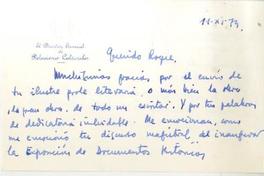 11-XI-79.
El Director General
de
Relaciones Culturales
Querido Roque,
Muchísimas gracias por el envío de
tu ilustre pode literaria, o más bien la obra,
de gran obra, de todo un escritor. Y por tus palabras
de dedicatoria inolvidables. Me emocionan, como
me emocionó tu discurso magistral al inaugurar
la Exposición de Documentos Históricos